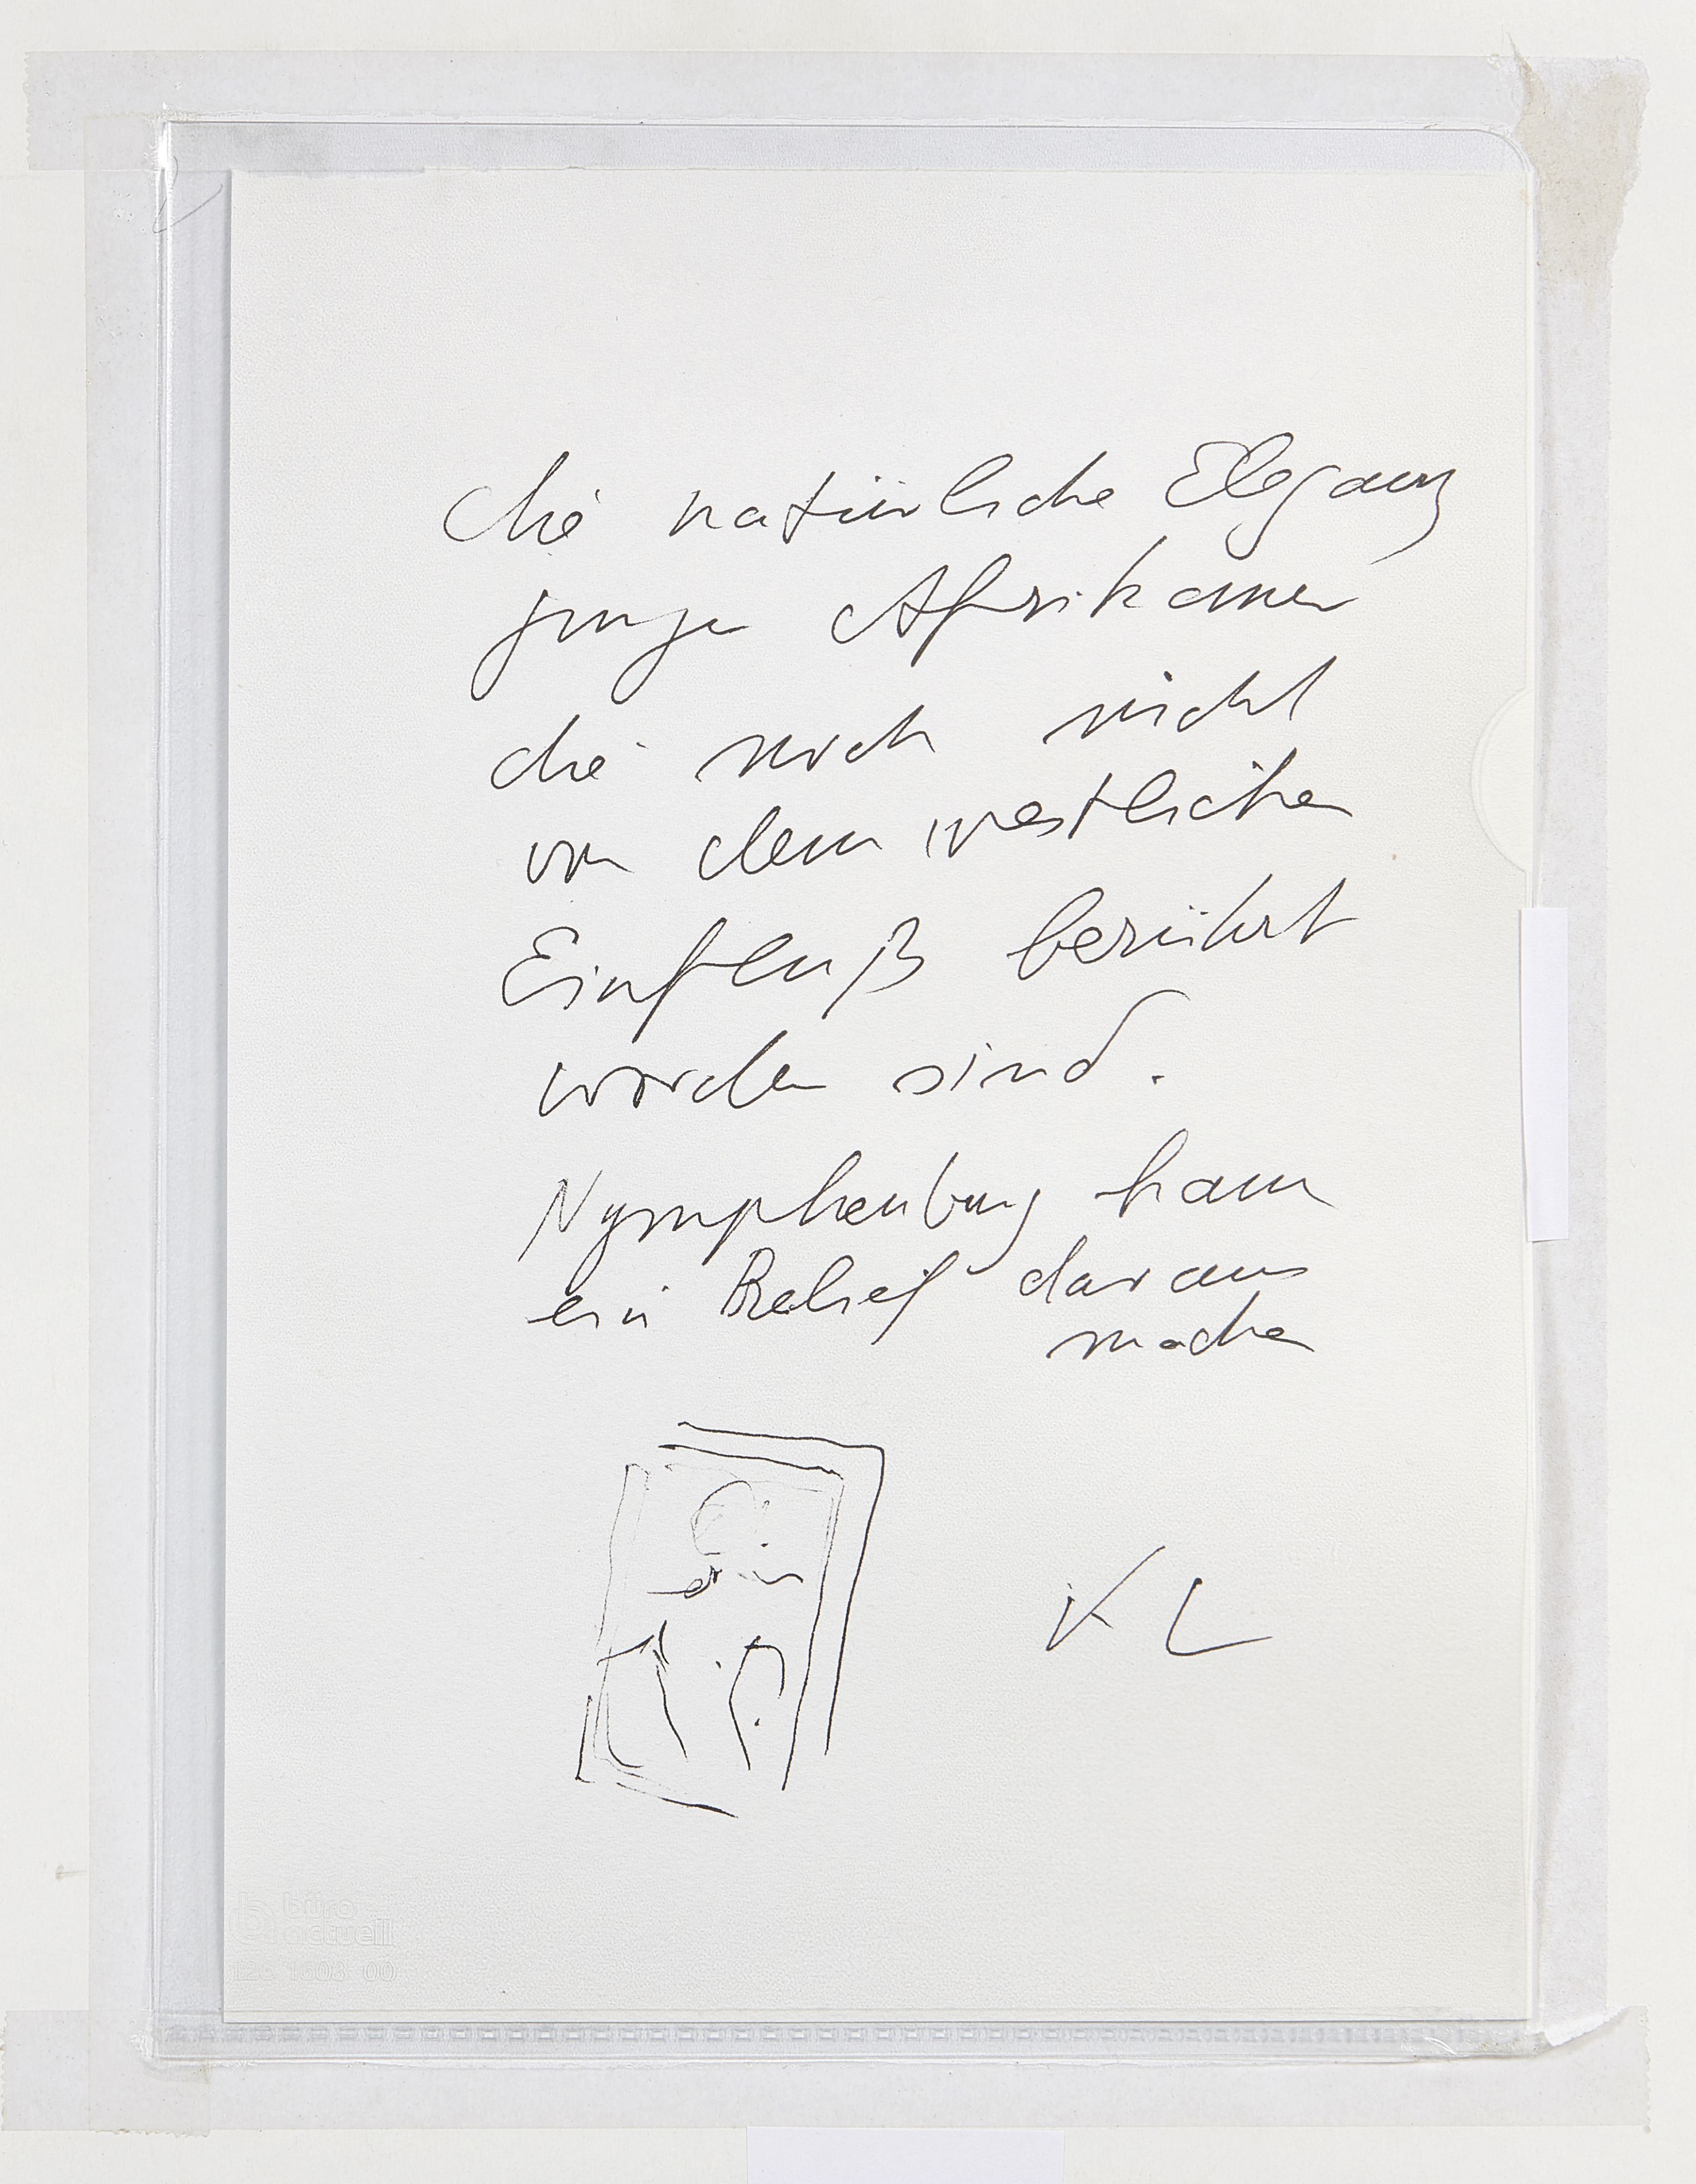 die natürliche Eleganz
junge Afrikaner
die noch nicht
von dem westlichen
Einfluß berührt
worden sind.
Nymphenburg kann
ein Relief daraus
machen
KL
büro
actuell